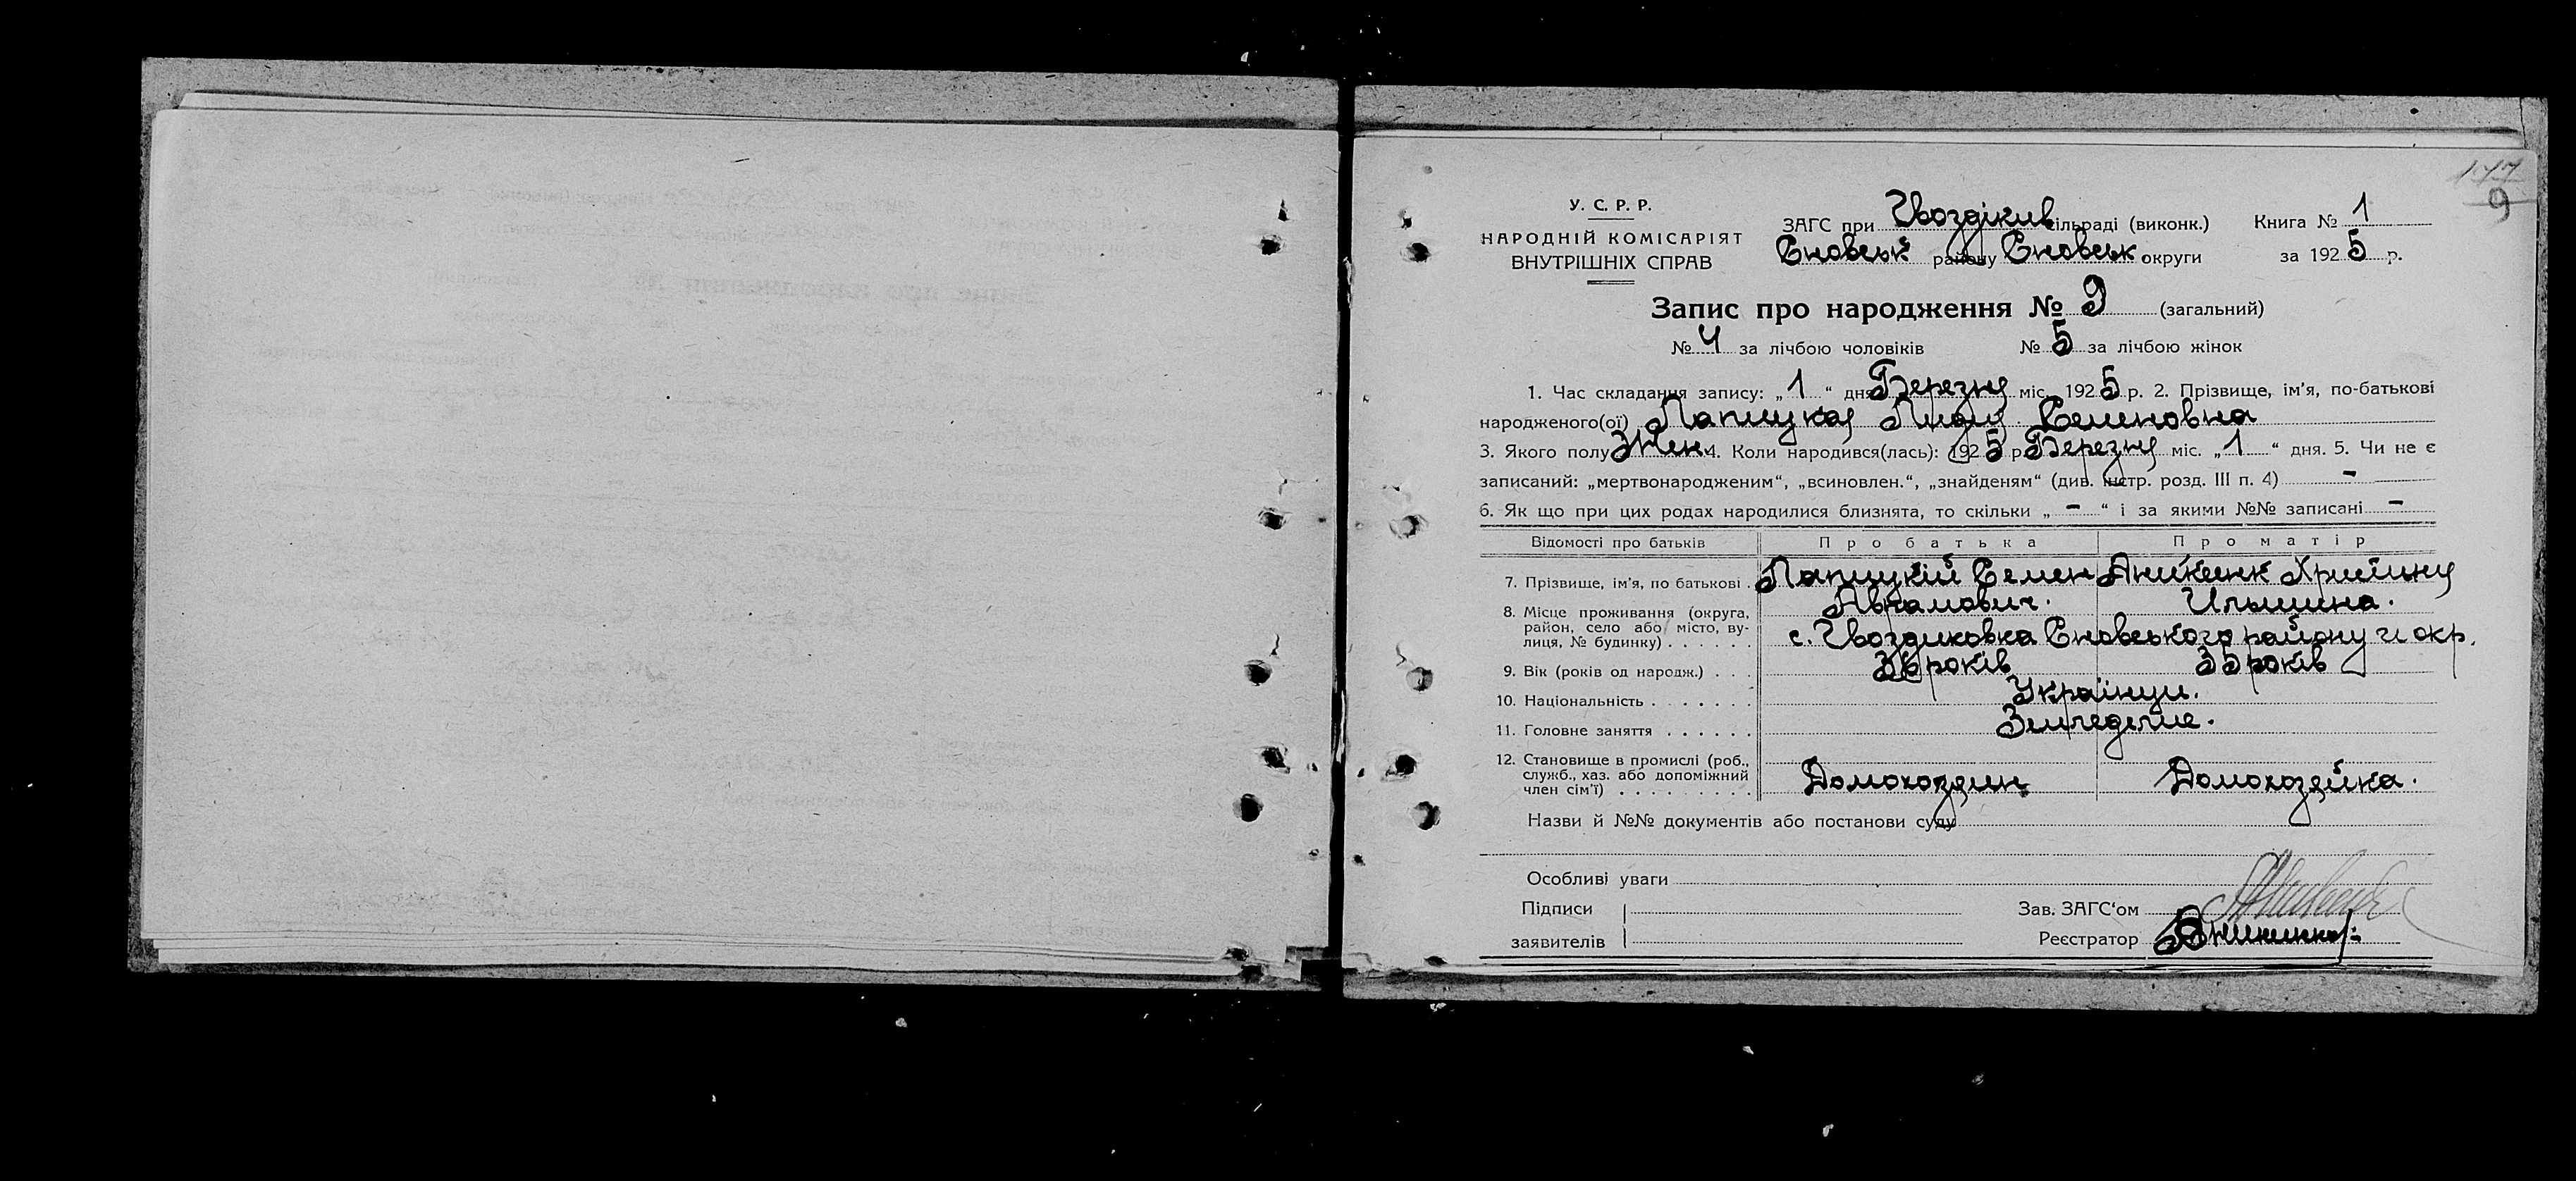 177
9
У. С. Р. Р.
НАРОДНІЙ КОМІСАРІЯТ
ВНУТРІШНІХ СПРАВ
ЗАГС при Гвоздіков сільраді (виконк.) Книга № 1
Сновськ району Сновськ округи за 1925 р.
Запис про народження № 9 (загальний)
№ 4 за лічбою чоловіків № 5 за лічбою жінок
1. Час складання запису: „1“ дня Березня міс. 1925 р. 2. Прізвище, ім’я, по-батькові
народженого(ої) Лапицкая Лидия Семеновна
3. Якого полу Жен. 4. Коли народився(лась): 1925 р. Березня міс. „1“ дня. 5. Чи не є
записаний: „мертвонародженим“, „всиновлен.“, „знайденям“ (див. інстр. розд. III п. 4) -
6. Як що при цих родах народилися близнята, то скільки „ - “ і за якими №№ записані -
Відомості про батьків Про батька Про матір
7. Прізвище, ім’я, по батькові . Лапицкій Семен Аникенк Христиня
Аврамович. Ильинина.
8. Місце проживання (округа,
район, село або місто, ву-
лиця, № будинку) . . . . . . с. Гвоздиковка Сновського району и окр.
9. Вік (років од народж.) . . . 36 років 35 років
10. Національність . . . . . . . Українци.
11. Головне заняття . . . . . . Земледелие.
12. Становище в промислі (роб.,
служб., хаз. або допоміжний
член сім’ї) . . . . . . . . . Домохозяин Домохозяйка.
Назви й №№ документів або постанови суду
Особливі уваги
Підписи
заявителів
Зав. ЗАГС‘ом
Реєстратор